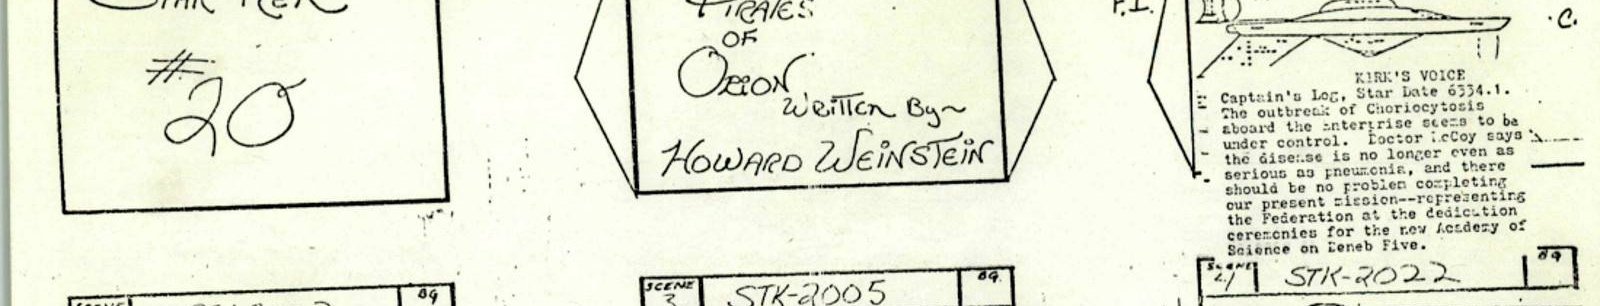 STAR TREK
# 20
PIRATES
OF
ORION
WRITTEN BY~
HOWARD WEINSTEIN
P.I.
C.
KIRK'S VOICE
Captain's Log, Star Date 6334.1.
The outbreak of Choriocytosis
aboard the Enterprise seems to be
under control. Doctor McCoy says
the disease is no longer even as
serious as pneumonia, and there
should be no problem completing
our present mission--representing
the Federation at the dedication
ceremonies for the new Academy of
Science on Deneb Five.
SCENE
BG
SCENE
3
STK-2005
BG.
SCENE
STK-2022
BG